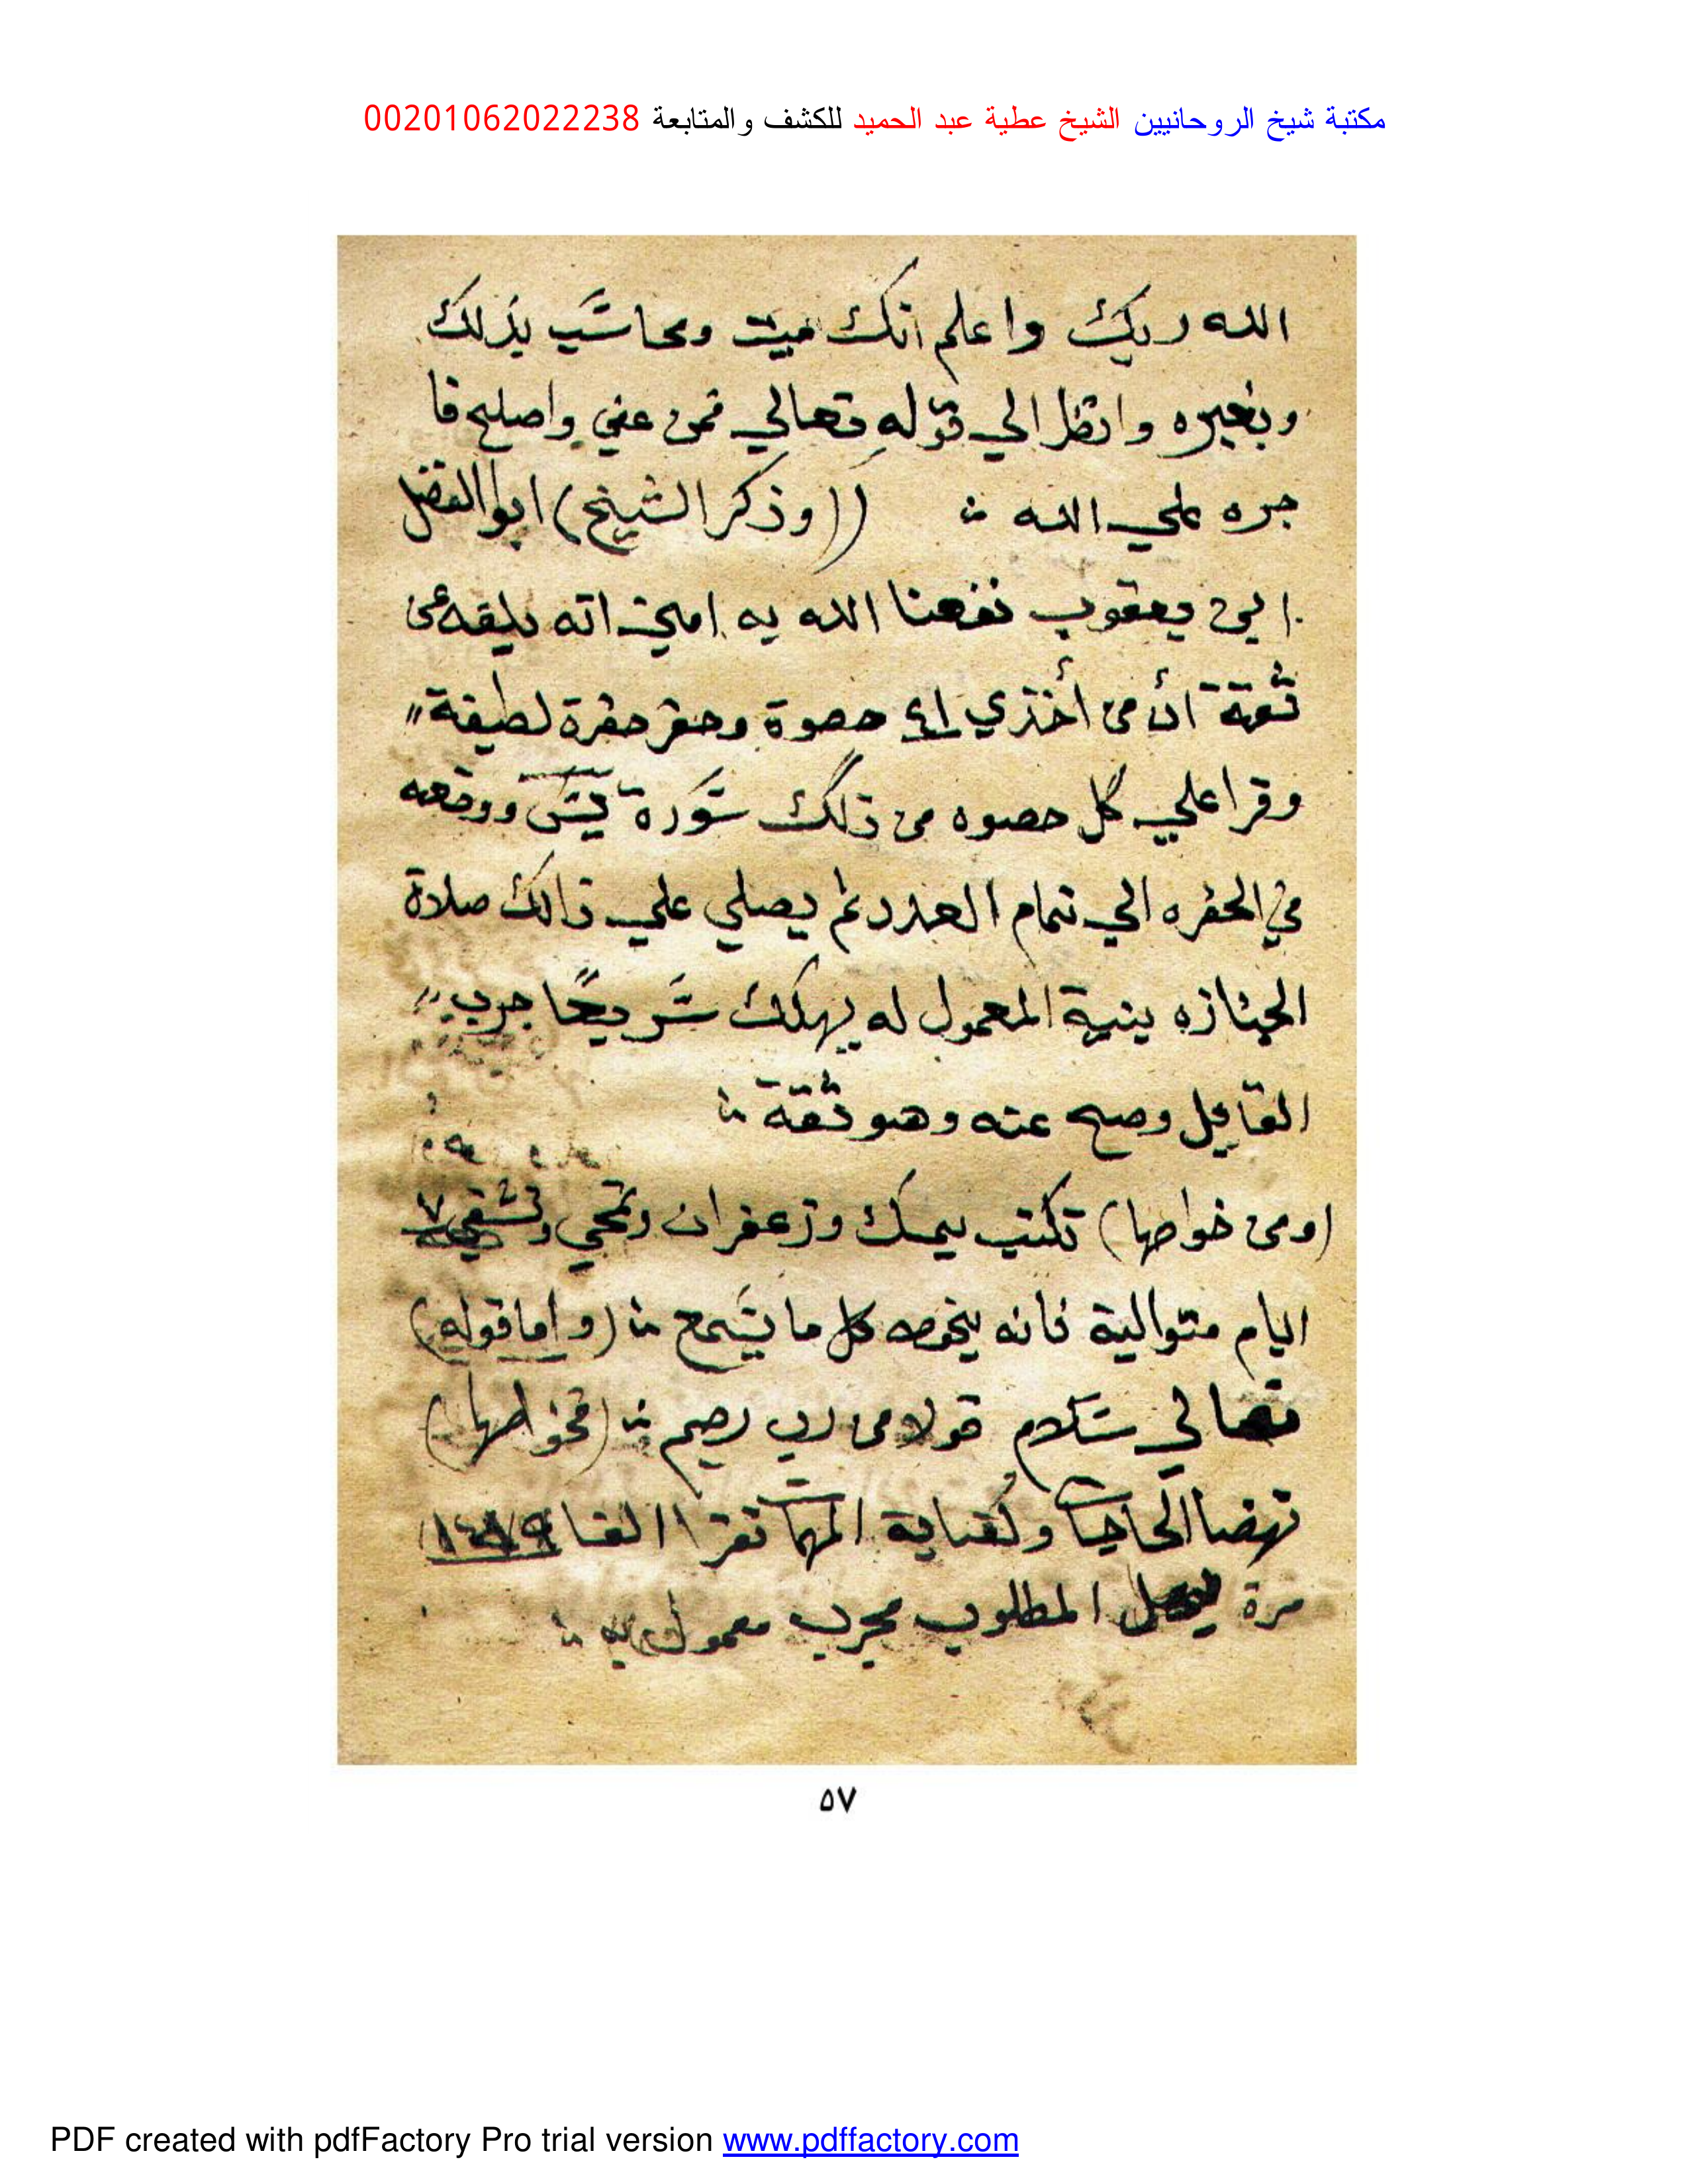 مكتبة شيخ الروحانيين الشيخ عطية عبد الحميد للكشف والمتابعة 00201062022238
الله ربك واعلم انك ميت ومحاسب بذلك
وبغيره وانظر الي قوله تعالي فمن عفي واصلح فا
جره علي الله ((وذكر الشيخ) ابوا الفضل
ابن يعقوب نفعنا الله به امين انه بلغه عن
ثقة أن من أخذ ٤١ حصوة وحفر حفرة لطيفة
وقرا علي كل حصوه من تلك سورة يس ووقعه
في الحفره الي تمام العدد ثم يصلي علي ذالك صلاة
الجنازه بنية المعمول له يهلك سريعًا جرب
القايل وصح عنه وهو ثقة
(ومن خواصها) تكتب بمسك وزعفران وتمحي وتسقي ٧
ايام متوالية فانه يحفظ كل ما يسمع (واما قوله)
تعالي سلام قولا من رب رحيم (فخواصها)
لقضا الحاجات وكفاية المهمات تقرا الفا
مرة المطلوب مجرب معمول به
٥٧
PDF created with pdfFactory Pro trial version www.pdffactory.com